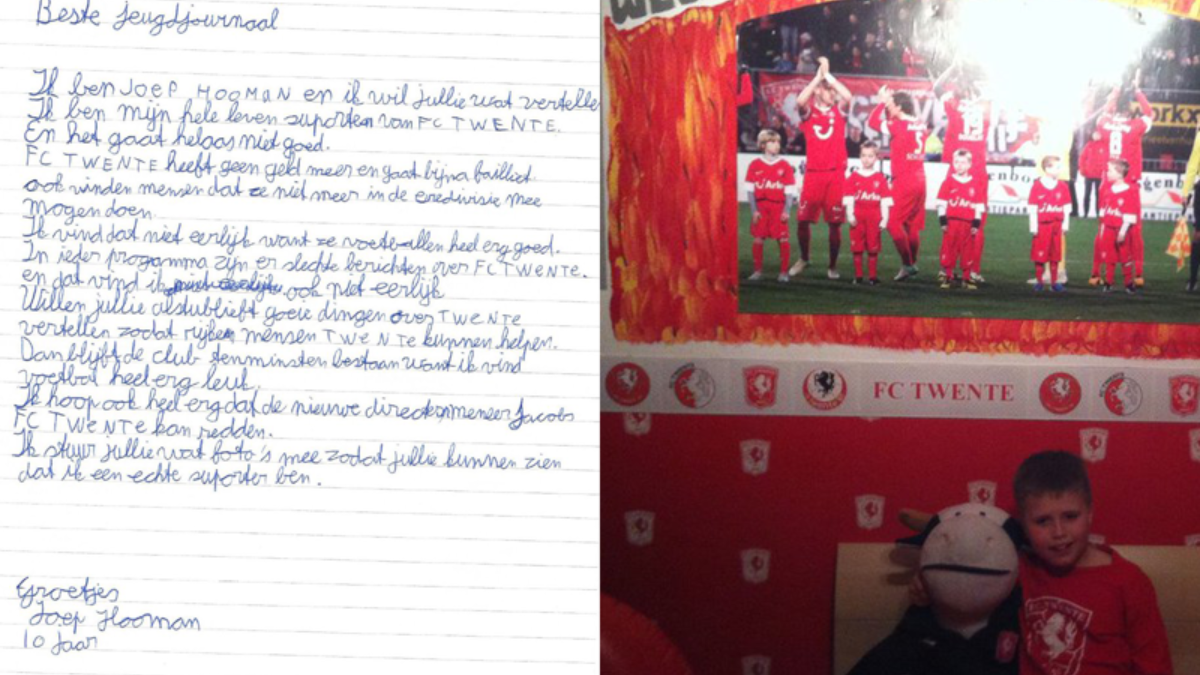 Beste Jeugdjournaal
Ik ben JOEP HOOMAN en ik wil jullie wat vertelle
Ik ben mijn hele leven suporter van FC TWENTE.
En het gaat helaas niet goed.
FC TWENTE heeft geen geld meer en gaat bijna failliet.
ook vinden mensen dat ze niet meer in de eredivisie mee
mogen doen.
Ik vind dat niet eerlijk want ze voetballen heel erg goed.
In ieder progamma zijn er slechte berichten over FC TWENTE.
en dat vind ik ook niet eerlijk
Willen jullie alstublieft goeie dingen over TWENTE
vertellen zodat rijke mensen TWENTE kunnen helpen.
Dan blijft de club tenminsten bestaan want ik vind
voetbal heel erg leuk.
Ik hoop ook heel erg dat de nieuwe directeur meneer Jacobs
FC TWENTE kan redden.
Ik stuur jullie wat foto's mee zodat jullie kunnen zien
dat ik een echte suporter ben.
Groetjes
Joep Hooman
10 Jaar
FC TWENTE